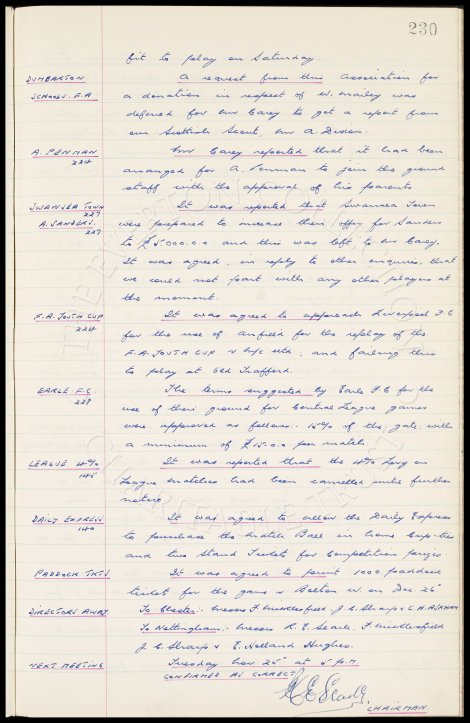 230
fit to play on Saturday.
DUMBARTON SCHOOLS. F.A
A request from this Association for
a donation in respect of W. was
deferred for Mr Carey to get a report from
our Scottish Scout, Mr A. Dixon.
A. PENMAN
224
Mr Carey reported that it had been
arranged for A. Penman to join the ground
staff with the approval of his parents
SWANSEA TOWN
227
A. SANDERS.
227
It was reported that Swansea Town
were prepared to increase their offer for Sanders
to £5000.0.0 and this was left to Mr Carey.
It was agreed, in reply to other enquiries, that
we could not part with any other players at
the moment.
F.A. YOUTH CUP
224
It was agreed to approach Liverpool F.C
for the use of Anfield for the replay of the
F.A. YOUTH CUP v M/C Utd, and failing this
to play at Old Trafford.
EARLE F.C.
228
The terms suggested by Earle F.C for the
use of their ground for Central League games
were approved as follows:- 15% of the gate with
a minimum of £15.0.0 per match.
LEAGUE 4%
145
It was reported that the 4% Levy on
League matches had been cancelled until further
notice
DAILY EXPRESS
140
It was agreed to allow the Daily Express
to purchase the Match Ball in home Cup-ties
and two Stand Tickets for Competition prizes
PADDOCK TKTS
It was agreed to print 1000 paddock
tickets for the game v Bolton W. on Dec 26
DIRECTORS AWAY
To Chester:- Messrs F Micklesfield J.C. Sharp & C.H. ASKHAM
To Nottingham:- Messrs R.E. Searle, F Micklesfield
J.C. Sharp & E. Holland Hughes.
NEXT MEETING
Tuesday Nov 25 at 5 P.M.
CONFIRMED AS CORRECT
CHAIRMAN